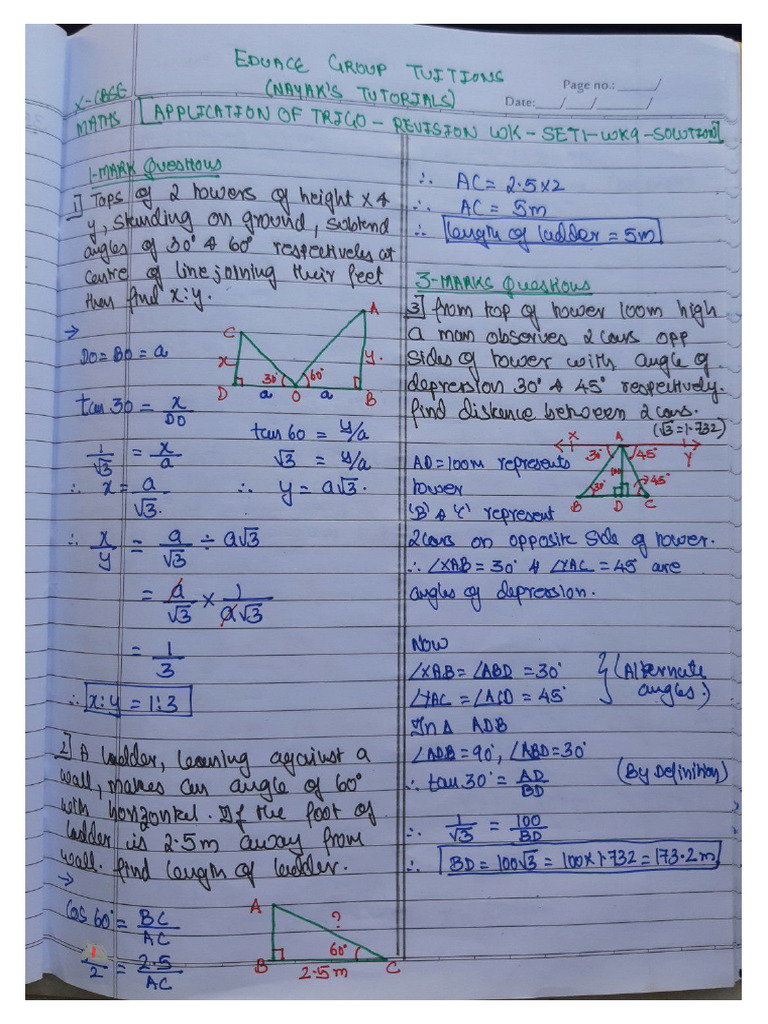 EDUACE GROUP TUITIONS
(NAYAK'S TUTORIALS)
Page no.: ___/
Date: __/__/____
X-CBSE
MATHS
[APPLICATION OF TRIGO - REVISION WK - SET1 - WK9 - SOLUTION]
1-MARK Questions
1] Tops of 2 towers of height x &
y, standing on ground, subtend
angles of 30° & 60° respectively at
centre of line joining their feet
then find x:y.
→
DO = BO = a
C
A
x
y.
30°
60°
D
a
O
a
B
tan 30 = x/DO
1/√3 = x/a
∴ x = a/√3.
tan 60 = y/a
√3 = y/a
∴ y = a√3.
∴ x/y = a/√3 ÷ a√3
= a/√3 × 1/a√3
= 1/3
∴ x:y = 1:3
2] A ladder, leaning against a
wall, makes an angle of 60°
with horizontal. If the foot of
ladder is 2.5m away from
wall. find length of ladder.
→
Cos 60° = BC/AC
1/2 = 2.5/AC
A
?
60°
B
2.5m
C
∴ AC = 2.5×2
∴ AC = 5m
∴ length of ladder = 5m
3-MARKS Questions
3] from top of tower 100m high
a man observes 2 cars opp
sides of tower with angle of
depression 30° & 45° respectively.
find distance between 2 cars.
(√3=1.732)
X
A
Y
30°
45°
100
30°
45°
B
D
C
AD = 100m represents
tower
'B' & 'C' represent
2 cars on opposite side of tower.
∴ ∠XAB = 30° & ∠YAC = 45° are
angles of depression.
Now
∠XAB = ∠ABD = 30°
∠YAC = ∠ACD = 45°
} (Alternate
angles.)
In Δ ADB
∠ADB = 90°, ∠ABD = 30°
∴ tan 30° = AD/BD (By Definition)
∴ 1/√3 = 100/BD
∴ BD = 100√3 = 100×1.732 = 173.2 m